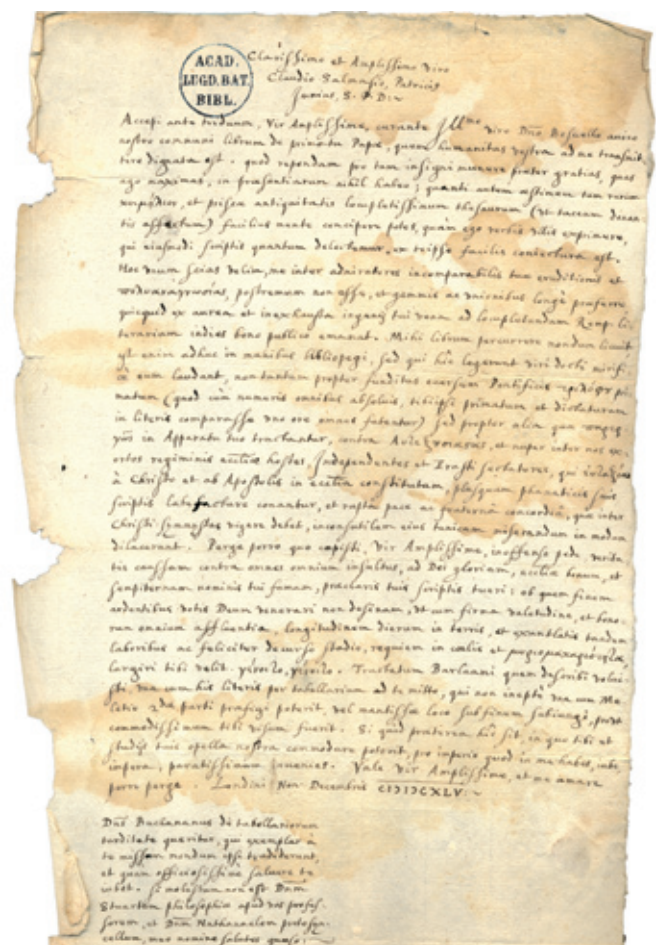 ACAD.
LUGD. BAT.
BIBL.
Clarissimo et Amplissimo Viro
Claudio Salmasio, Patricius
Junius, S. P. D:~
Accepi ante triduum, Vir Amplissime, curante Illmo viro Dno Bosuello amico
nostro communi librum de primatu Papae, quem humanitas vestra ad me transmit-
tere dignata est. quod rependam pro tam insigni munere praeter gratias, quas
ago maximas, in praesentiarum nihil habeo; quanti autem aestimem tam rarum
et priscae antiquitatis locupletissimum thesaurum (ut taceam donan-
tis affectum) facilius mente concipere potes, quàm ego verbis ullis exprimere,
qui eiusmodi scriptis quantum delectemur, ex teipso facilis coniectura est.
Hoc unum scias velim, me inter admiratores incomparabilis tuae eruditionis et
postremum non esse, et gemmis ac unionibus longè praeferre
quicquid ex aurea et inexhausta ingenij tui vena ad locupletandam Remp. lit-
terariam indies bono publico emanat. Mihi librum percurrere nondum licuit
est enim adhuc in manibus bibliopegi, sed qui hîc legerunt viri docti mirifi-
cè eum laudant, non tantum propter funditus eversum Pontificis pri-
matum (quod cùm numeris omnibus absolvis, tibi ipsi primatum et dictaturam
in literis comparasse uno ore omnes fatentur) sed propter alia quae
in Apparatu tuo tractantur, contra et nuper inter nos ex-
ortos regiminis eccliae hostes, Independentes et Erasti sectatores, qui
à Christo et ab Apostolis in ecclia constitutam, plusquam phanaticis suis
scriptis labefactare conantur, et rupta pace ac fraterna concordia, quae inter
Christi symmystas vigere debet, inconsutilem eius tunicam miserandum in modum
dilacerant. Perge porro quo coepisti, Vir Amplissime, inoffenso pede verita-
tis caussam contra omnes omnium insultus, ad Dei gloriam, eccliae bonum, et
sempiternam nominis tui famam, praeclaris tuis scriptis tueri: ob quem finem
ardentibus votis Deum venerari non desinam, ut cum firma valetudine, et bono-
rum omnium affluentia, longitudinem dierum in terris, et exantlatis tandem
laboribus ac feliciter decurso stadio, requiem in coelis et
largiri tibi velit. γένοιτο, γένοιτο. Tractatum Barlaami quem describi volui-
sti, una cum his literis per tabellarium ad te mitto, qui non ineptè una cum Me-
letio 2dae parti praefigi poterit, vel mantissae loco sub finem subiungi, prout
commodissimum tibi visum fuerit. Si quid praeterea hîc sit, in quo tibi et
studijs tuis opella nostra commodare poterit, pro imperio quod in me habes, iube,
impera, paratissimum invenies. Vale Vir Amplissime, et me amare
porro perge. Londini Non. Decembris CIↃIↃCXLV:~
Dns Buchananus de tabellariorum
tarditate queritur, qui exemplar à
te missum nondum ipsi tradiderunt,
et quam officiosissimè salvere te
iubet. si molestum non est Dnm
Stuartum philosophiae apud vos profes-
sorem, et Dnm Nathanaelem protosyn-
cellum, meo nomine salutes quaeso:~